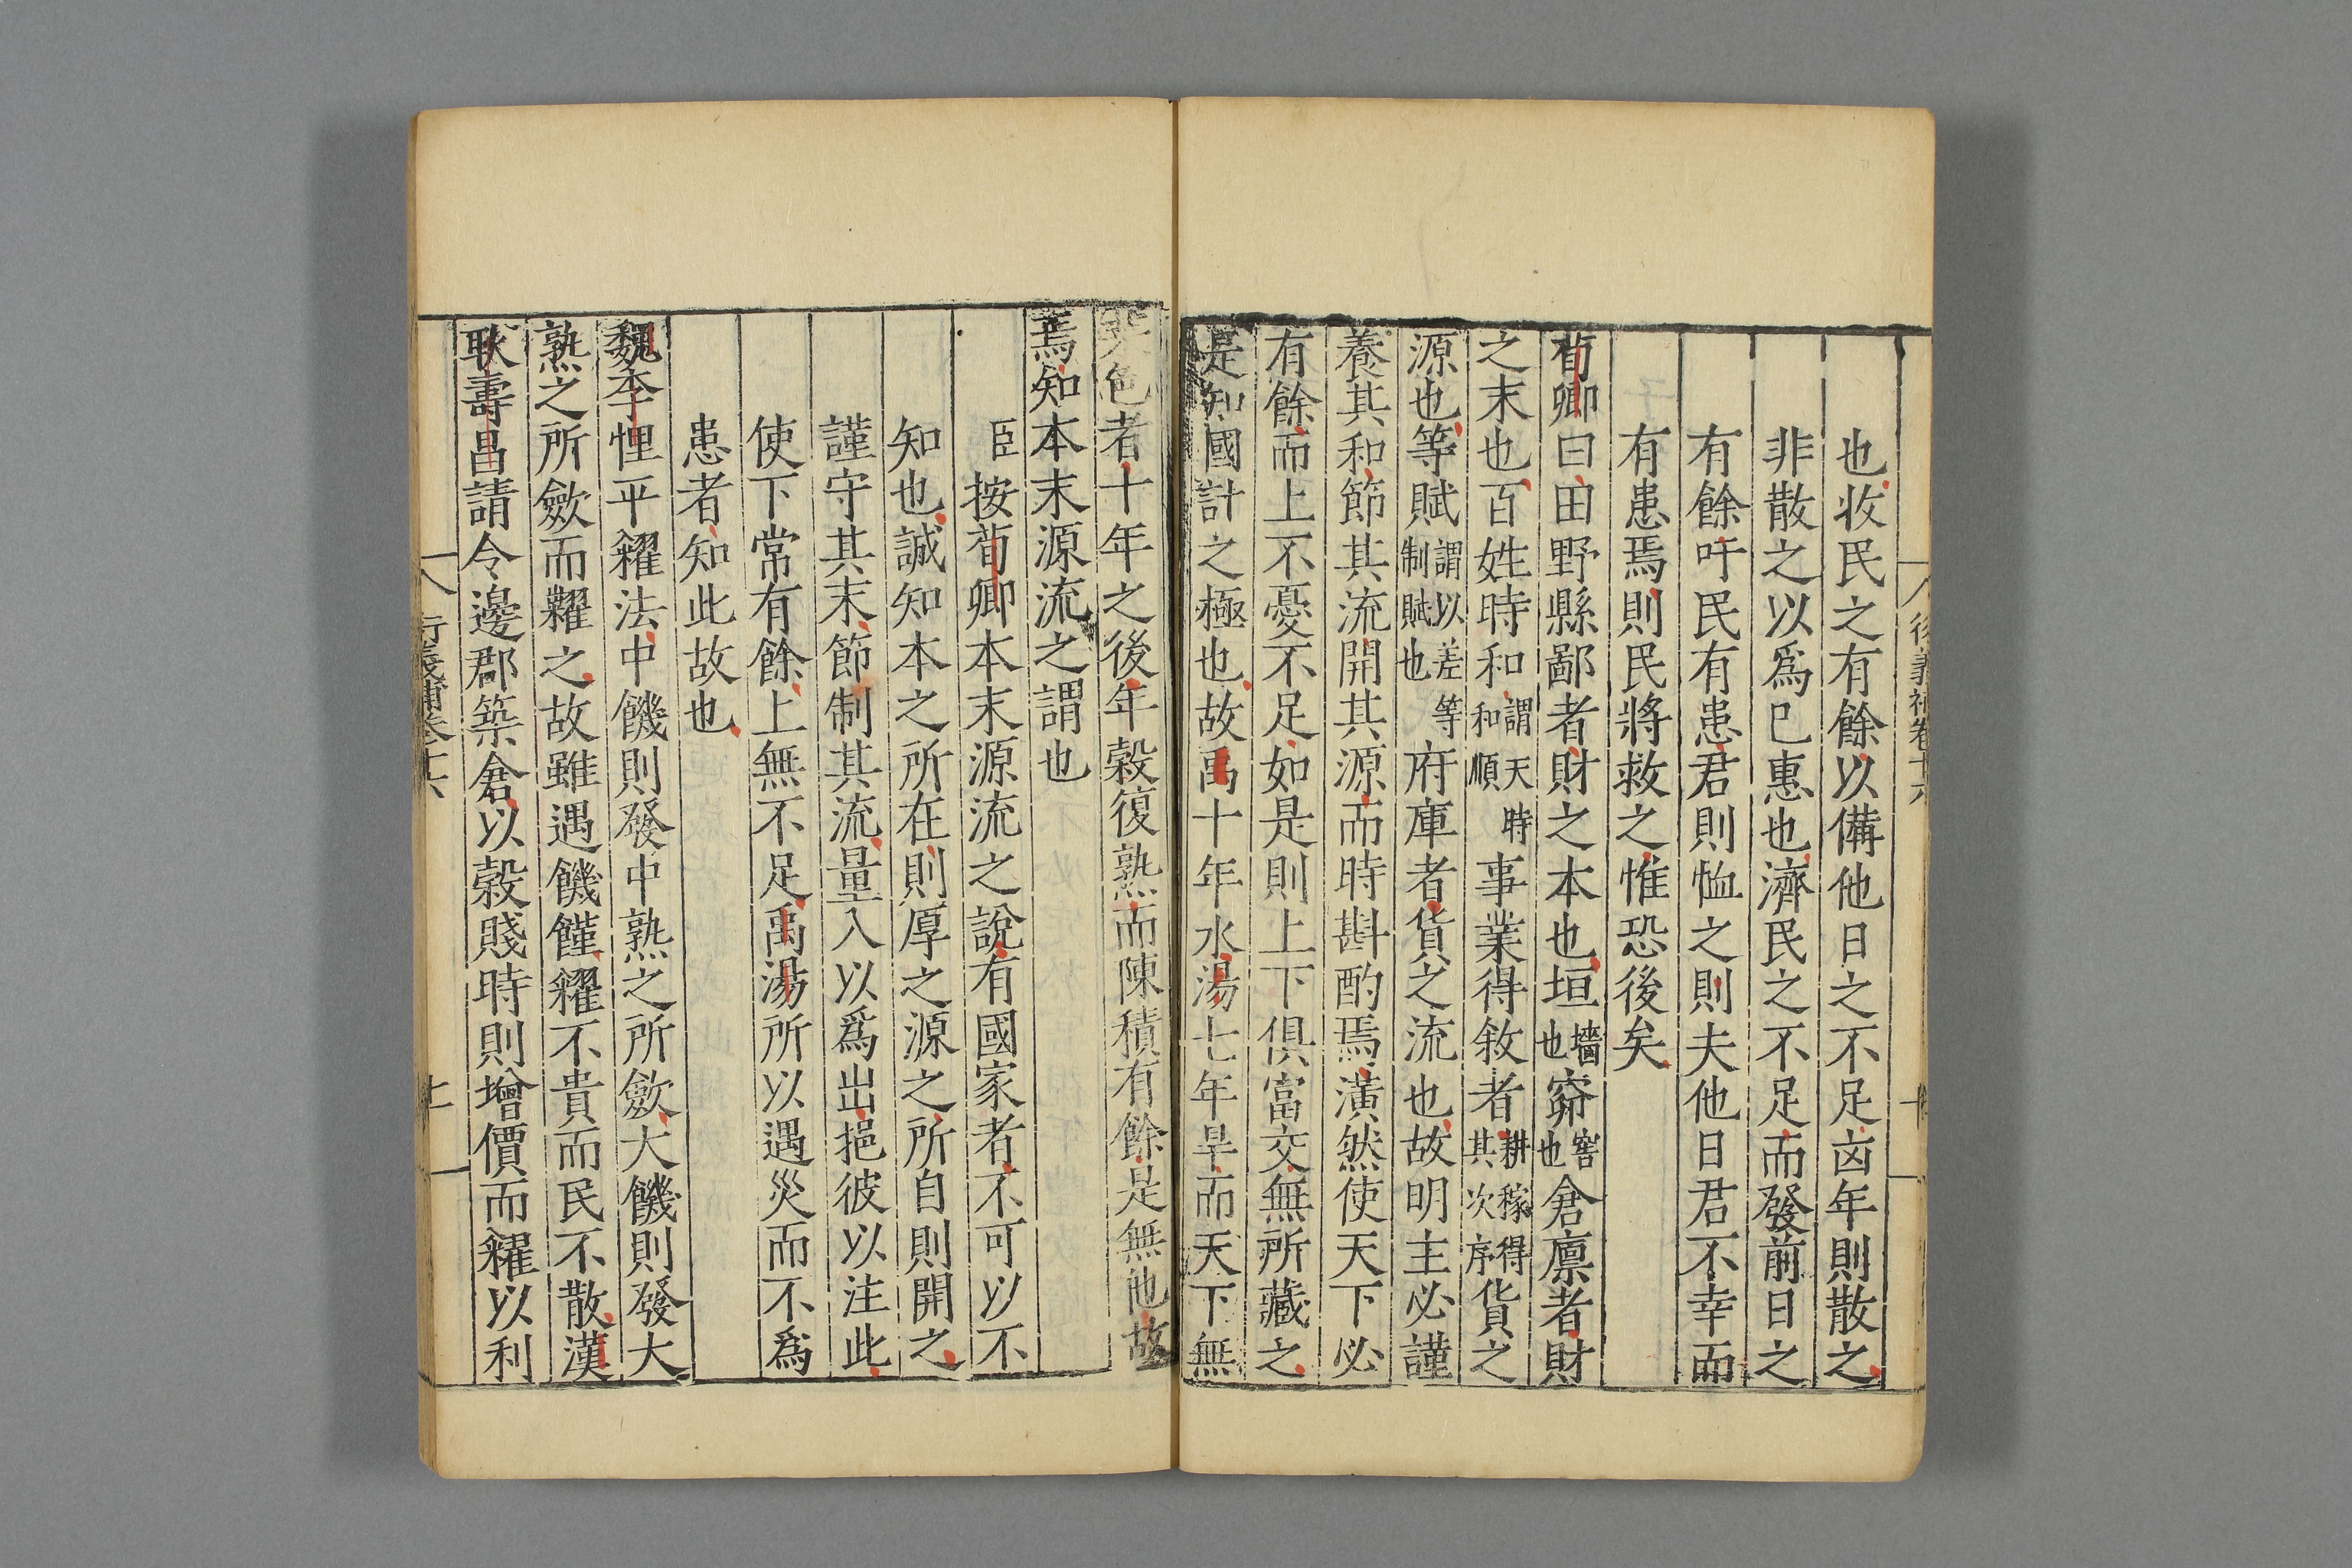 也收民之有餘以備他日之不足凶年則散之
非散之以爲已惠也濟民之不足而發前日之
有餘吁民有患君則恤之則夫他日君不幸而
有患焉則民將救之惟恐後矣
荀卿曰田野縣鄙者財之本也垣墻也窌窖也倉廪者財
之末也百姓時和謂天時和順事業得敘者耕稼得其次序貨之
源也等賦謂以差等制賦也府庫者貨之流也故明主必謹
養其和節其流開其源而時斟酌焉潢然使天下必
有餘而上不憂不足如是則上下俱富交無所藏之
是知國計之極也故禹十年水湯七年旱而天下無
菜色者十年之後年榖復熟而陳積有餘是無他故
焉知本末源流之謂也
臣按荀卿本末源流之說有國家者不可以不
知也誠知本之所在則厚之源之所自則開之
謹守其末節制其流量入以爲出挹彼以注此
使下常有餘上無不足禹湯所以遇災而不爲
患者知此故也
魏李悝平糴法中饑則發中熟之所斂大饑則發大
熟之所斂而糶之故雖遇饑饉糴不貴而民不散漢
耿壽昌請令邊郡築倉以榖賤時則增價而糴以利